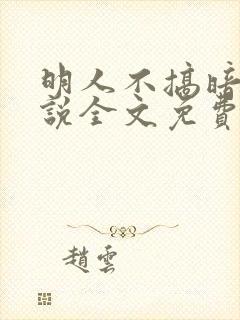 明人不搞暗
說全文免費
趙雲